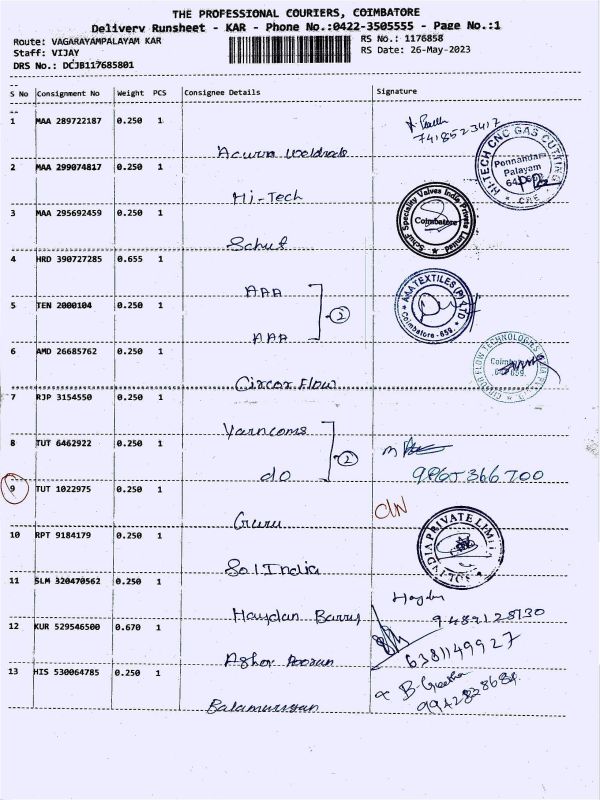 THE PROFESSIONAL COURIERS, COIMBATORE
Delivery Runsheet - KAR - Phone No.:0422-3505555 - Page No.:1
Route: VAGARAYAMPALAYAM KAR RS No.: 1176858
Staff: VIJAY RS Date: 26-May-2023
DRS No.: DCJB117685801
S No Consignment No Weight PCS Consignee Details Signature
1 MAA 289722187 0.250 1
7418523412
Acurra Weldrods
HI-TECH CNC GAS CUTTING
Ponnandam
Palayam
CBE
2 MAA 299074817 0.250 1
Hi-Tech
3 MAA 295692459 0.250 1
Schuf Speciality Valves India Private Limited
Coimbatore
Schuf
4 HRD 390727285 0.655 1
AAA
AAA TEXTILES (P) LTD
Coimbatore - 659.
5 TEN 2000104 0.250 1
2
AAA
6 AMD 26685762 0.250 1
CIRCOR FLOW TECHNOLOGIES INDIA
Circor Flow
7 RJP 3154550 0.250 1
Yarncoms
8 TUT 6462922 0.250 1
2
do
9 TUT 1022975 0.250 1
C/N
Guru
10 RPT 9184179 0.250 1
INDIA PRIVATE LIMITED
SOL
Sol India
11 SLM 320470562 0.250 1
Haydan Barry
9489128730
12 KUR 529546500 0.670 1
6381149927
13 HIS 530064785 0.250 1
B. Geetha
9942828684
Balamurugan